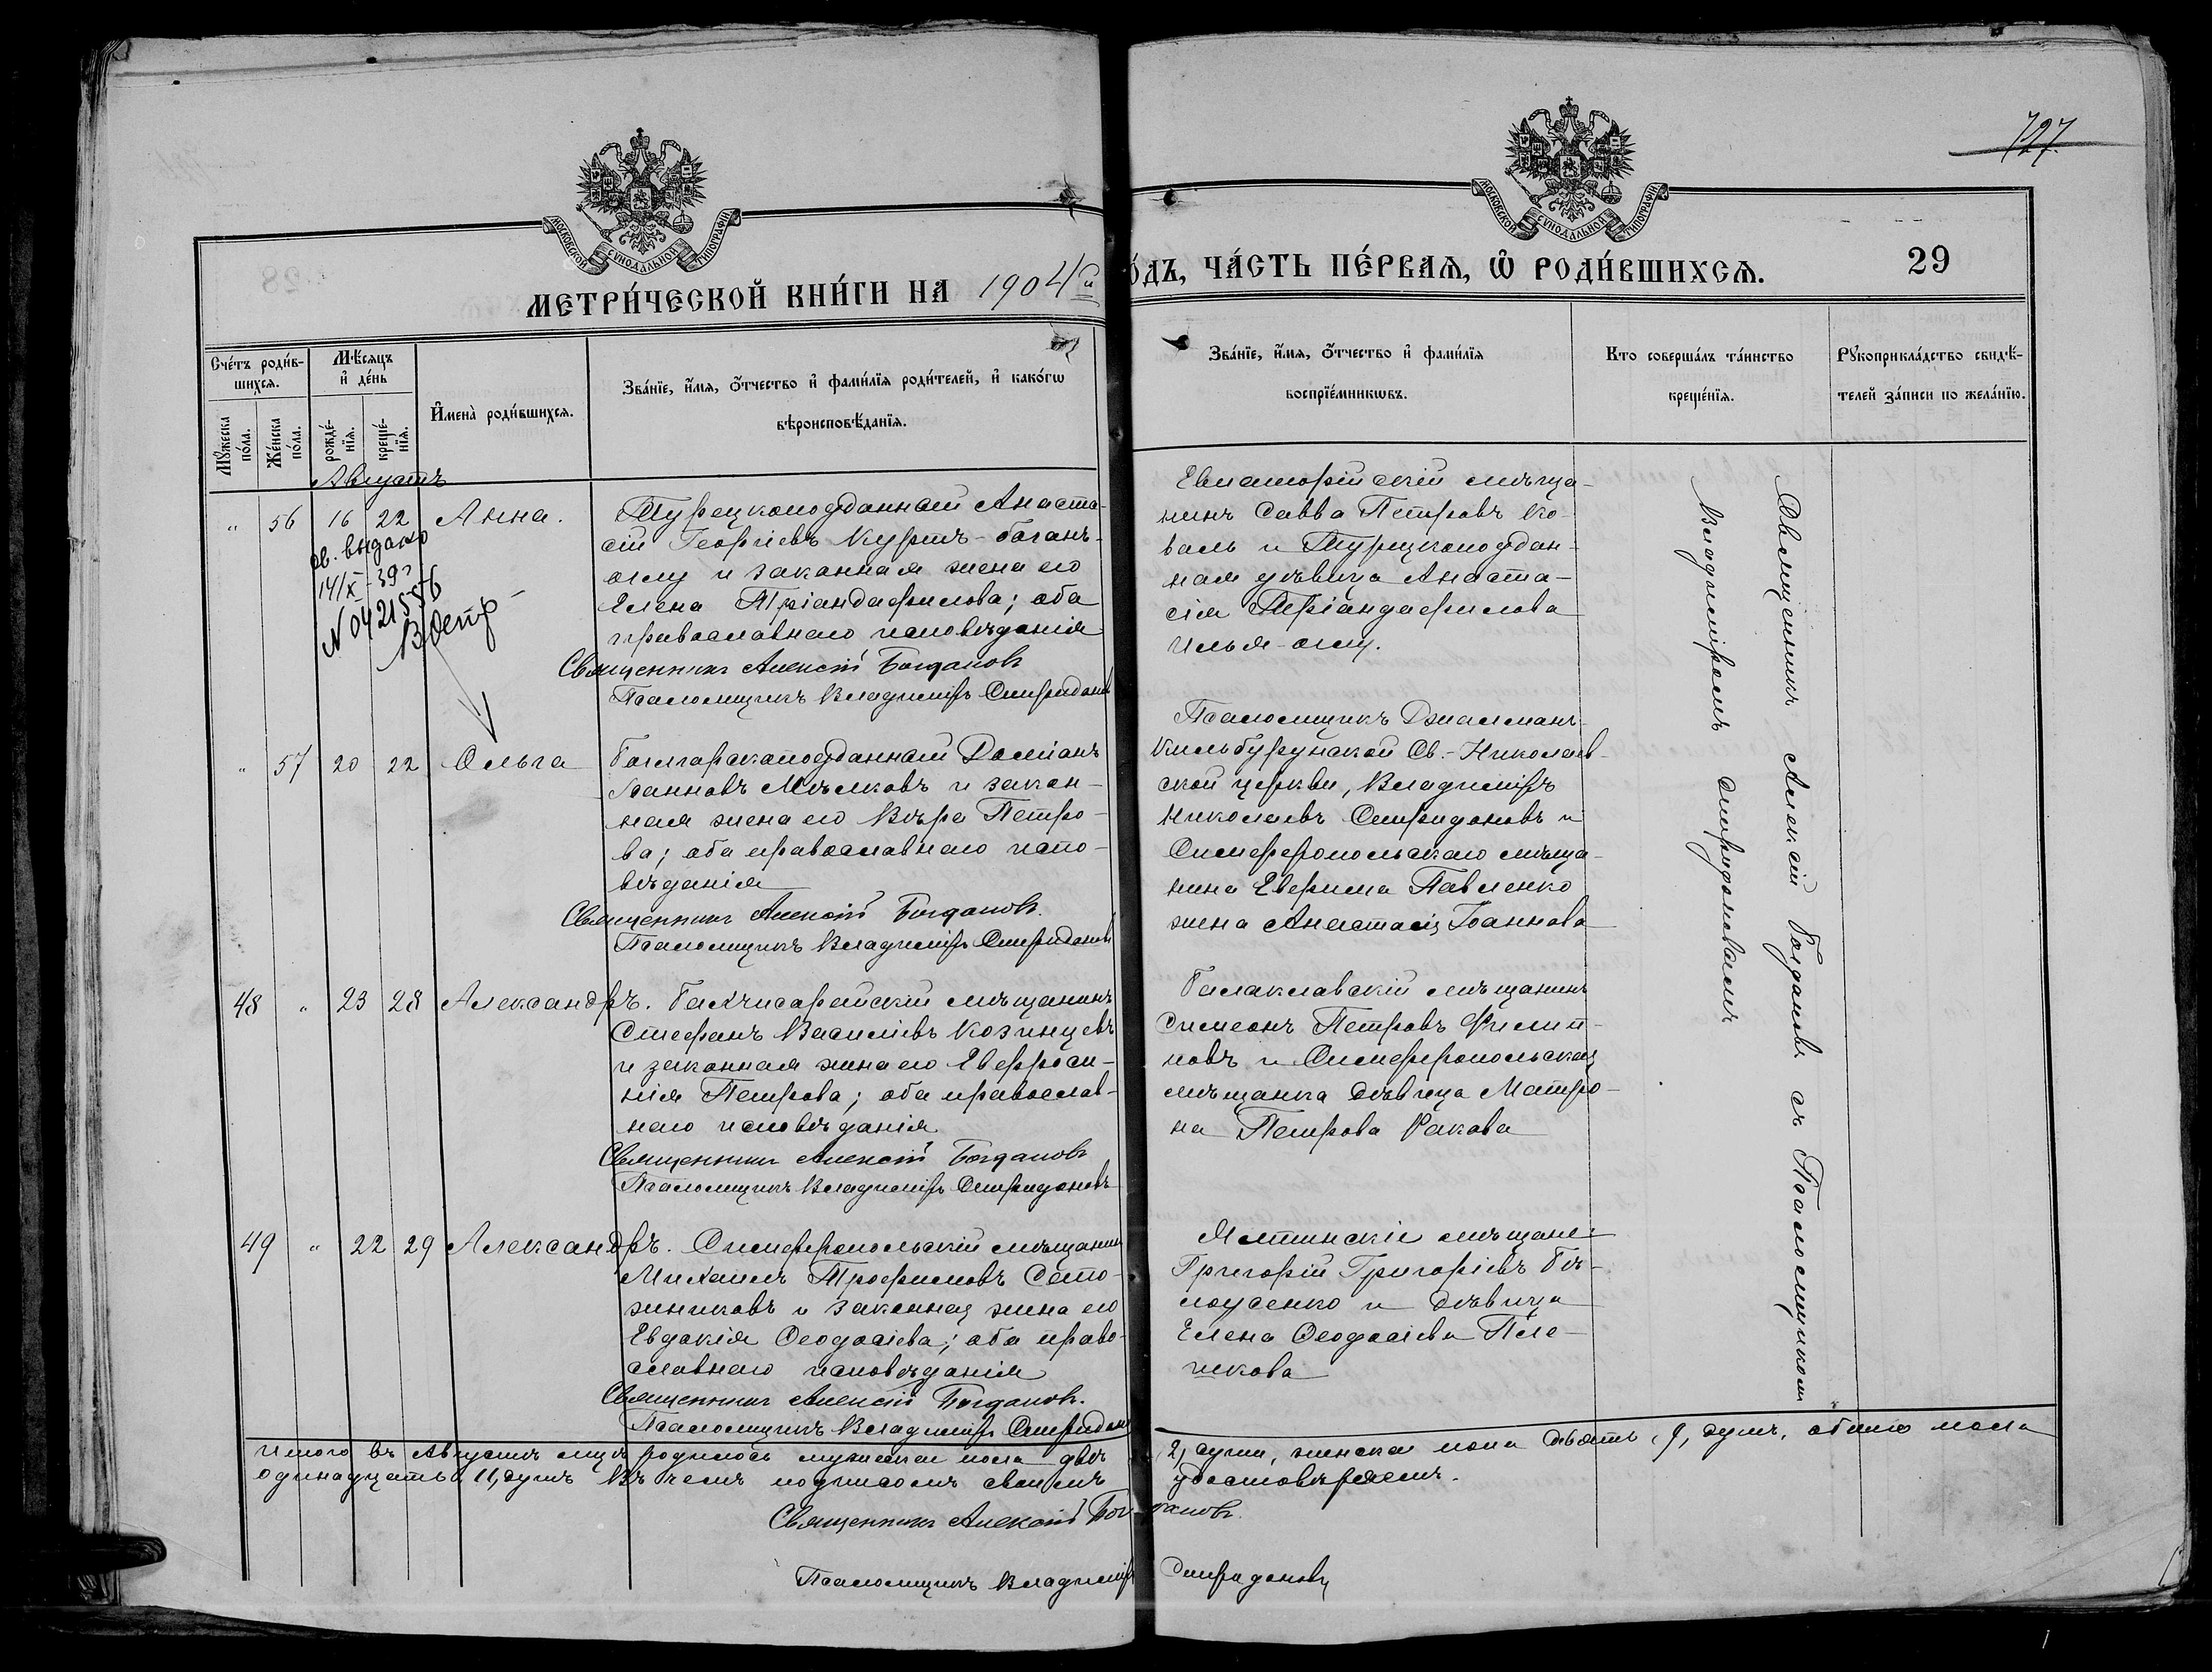 727.
МОСКОВСКОЙ СУНОДАЛЬНОЙ ТИПОГРАФІИ
МОСКОВСКОЙ СУНОДАЛЬНОЙ ТИПОГРАФІИ
МЕТРИ́ЧЕСКОЙ КНИ́ГИ НА 1904й
О́ДЪ, ЧА́СТЬ ПЕ́РВАѦ, Ѽ РОДИ́ВШИХСѦ.
29
Сче́тъ роди́в-
шихсѧ.
Мꙋ́жеска по́ла.
Же́нска по́ла.
Мѣ́сѧцъ
и҆ де́нь
рожде́-
нїѧ.
креще́-
нїѧ.
И҆мена̀ роди́вшихсѧ.
Зва́нїе, и҆́мѧ, о҆́тчество и҆ фами́лїѧ роди́телей, и҆ како́гѡ
вѣроисповѣ́данїѧ.
Зва́нїе, и҆́мѧ, о҆́тчество и҆ фами́лїѧ
воспрїе́мникѡвъ.
Кто соверша́лъ та́инство
креще́нїѧ.
Рꙋкоприкла́дство свидѣ́-
телей за́писи по жела́нїю.
Августъ
" 56 16 22 Анна.
св. выдано
14/X-39г
N 0421556
Турецкоподданный Анаста-
сій Георгіевъ Куртъ-боганъ-
оглу и законная жена его
Елена Тріандафилова; оба
православнаго исповѣданія
Священникъ Алексій Богдановъ
Псаломщикъ Владиміръ Спиридоновъ
Евпаторійскій мѣща-
нинъ Савва Петровъ Ко-
валь и Турецкоподдан-
ная дѣвица Анаста-
сія Тріандафилова
Илья-оглу.
" 57 20 22 Ольга
Болгарскоподданный Доміанъ
Іоанновъ Мѣлковъ и закон-
ная жена его Вѣра Петро-
ва; оба православнаго испо-
вѣданія
Священникъ Алексій Богдановъ.
Псаломщикъ Владиміръ Спиридоновъ
Псаломщикъ Джалманъ-
Кильбурунской Св.-Николаев-
ской церкви, Владиміръ
Николаевъ Спиридоновъ и
Симферопольскаго мѣща-
нина Евфима Павленко
жена Анастасія Іоаннова
48 " 23 28 Александръ.
Бахчисарайскій мѣщанинъ
Стефанъ Василіевъ Козинцевъ
и законная жена его Евфроси-
нія Петрова; оба православ-
наго исповѣданія
Священникъ Алексій Богдановъ
Псаломщикъ Владиміръ Спиридоновъ
Балаклавскій мѣщанинъ
Симеонъ Петровъ Филип-
повъ и Симферопольская
мѣщанка дѣвица Матро-
на Петрова Ракова
49 " 22 29 Александръ.
Симферопольскій мѣщанинъ
Михаилъ Трофимовъ Сапо-
жниковъ и законная жена его
Евдокія Ѳеодосіева; оба право-
славнаго исповѣданія
Священникъ Алексій Богдановъ.
Псаломщикъ Владиміръ Спиридоновъ
Ялтинскіе мѣщане:
Григорій Григоріевъ Бѣ-
лоусенко и дѣвица
Елена Ѳеодосіева
Священникъ Алексій Богдановъ съ Псаломщикомъ
Владиміромъ Спиридоновымъ
Итого въ Августѣ мцѣ родилось мужеска пола двѣ 2, души, женска пола девять, 9, душъ, обоего пола
одинадцать 11, душъ въ чемъ подписомъ своимъ удостовѣряемъ.
Священникъ Алексій Богдановъ.
Псаломщикъ Владиміръ Спиридоновъ